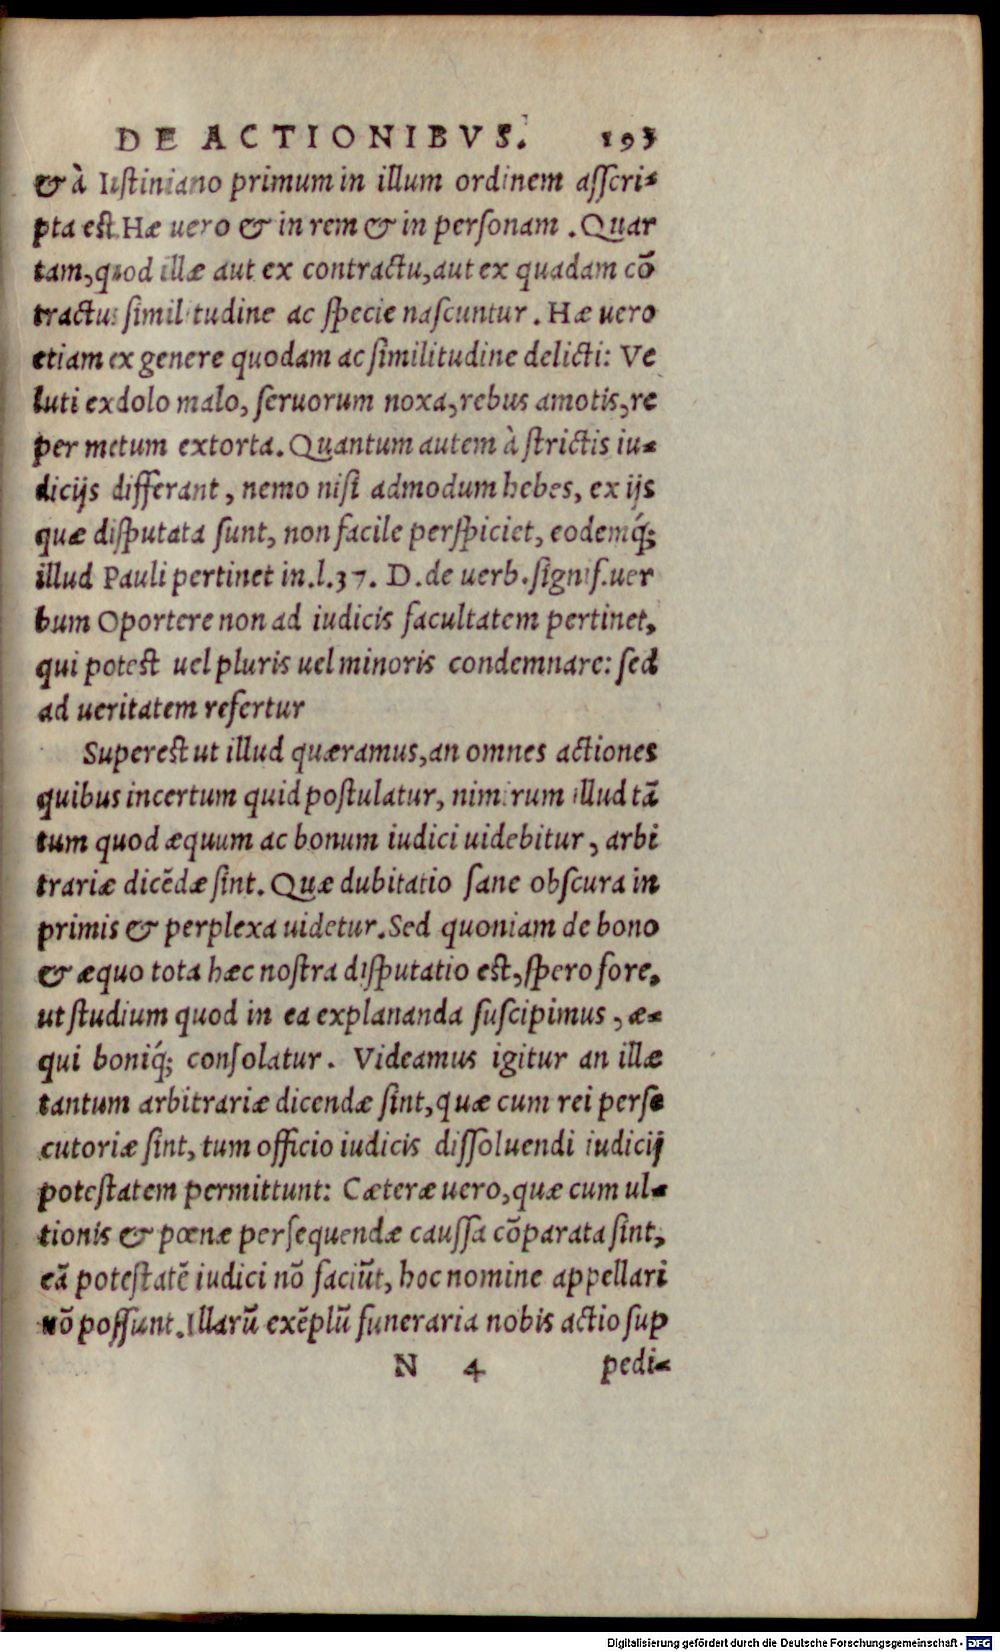 DE ACTIONIBVS. 193
& à Iustiniano primum in illum ordinem asscri-
pta est. Hæ vero & in rem & in personam. Quar
tam, quod illæ aut ex contractu, aut ex quadam cō
tractus similitudine ac specie nascuntur. Hæ uero
etiam ex genere quodam ac similitudine delicti: Ve
luti ex dolo malo, seruorum noxa, rebus amotis, re
per metum extorta. Quantum autem à strictis iu-
dicijs differant, nemo nisi admodum hebes, ex ijs
quæ disputata sunt, non facile perspiciet, eodemq́;
illud Pauli pertinet in.l.37. D. de uerb. signif. uer
bum Oportere non ad iudicis facultatem pertinet,
qui potest uel pluris uel minoris condemnare: sed
ad ueritatem refertur
Superest ut illud quæramus, an omnes actiones
quibus incertum quid postulatur, nimirum illud tā
tum quod æquum ac bonum iudici uidebitur, arbi
trariæ dicēdæ sint. Quæ dubitatio sane obscura in
primis & perplexa uidetur. Sed quoniam de bono
& æquo tota hæc nostra disputatio est, spero fore,
ut studium quod in ea explananda suscipimus, æ-
qui boniq́; consolatur. Videamus igitur an illæ
tantum arbitrariæ dicendæ sint, quæ cum rei perse
cutoriæ sint, tum officio iudicis dissoluendi iudicij
potestatem permittunt: Cæteræ uero, quæ cum ul-
tionis & pœnæ persequendæ caussa cōparata sint,
eā potestatē iudici nō faciūt, hoc nomine appellari
nō possunt. Illarū exēplū funeraria nobis actio sup
N 4 pedi-
Digitalisierung gefördert durch die Deutsche Forschungsgemeinschaft - DFG